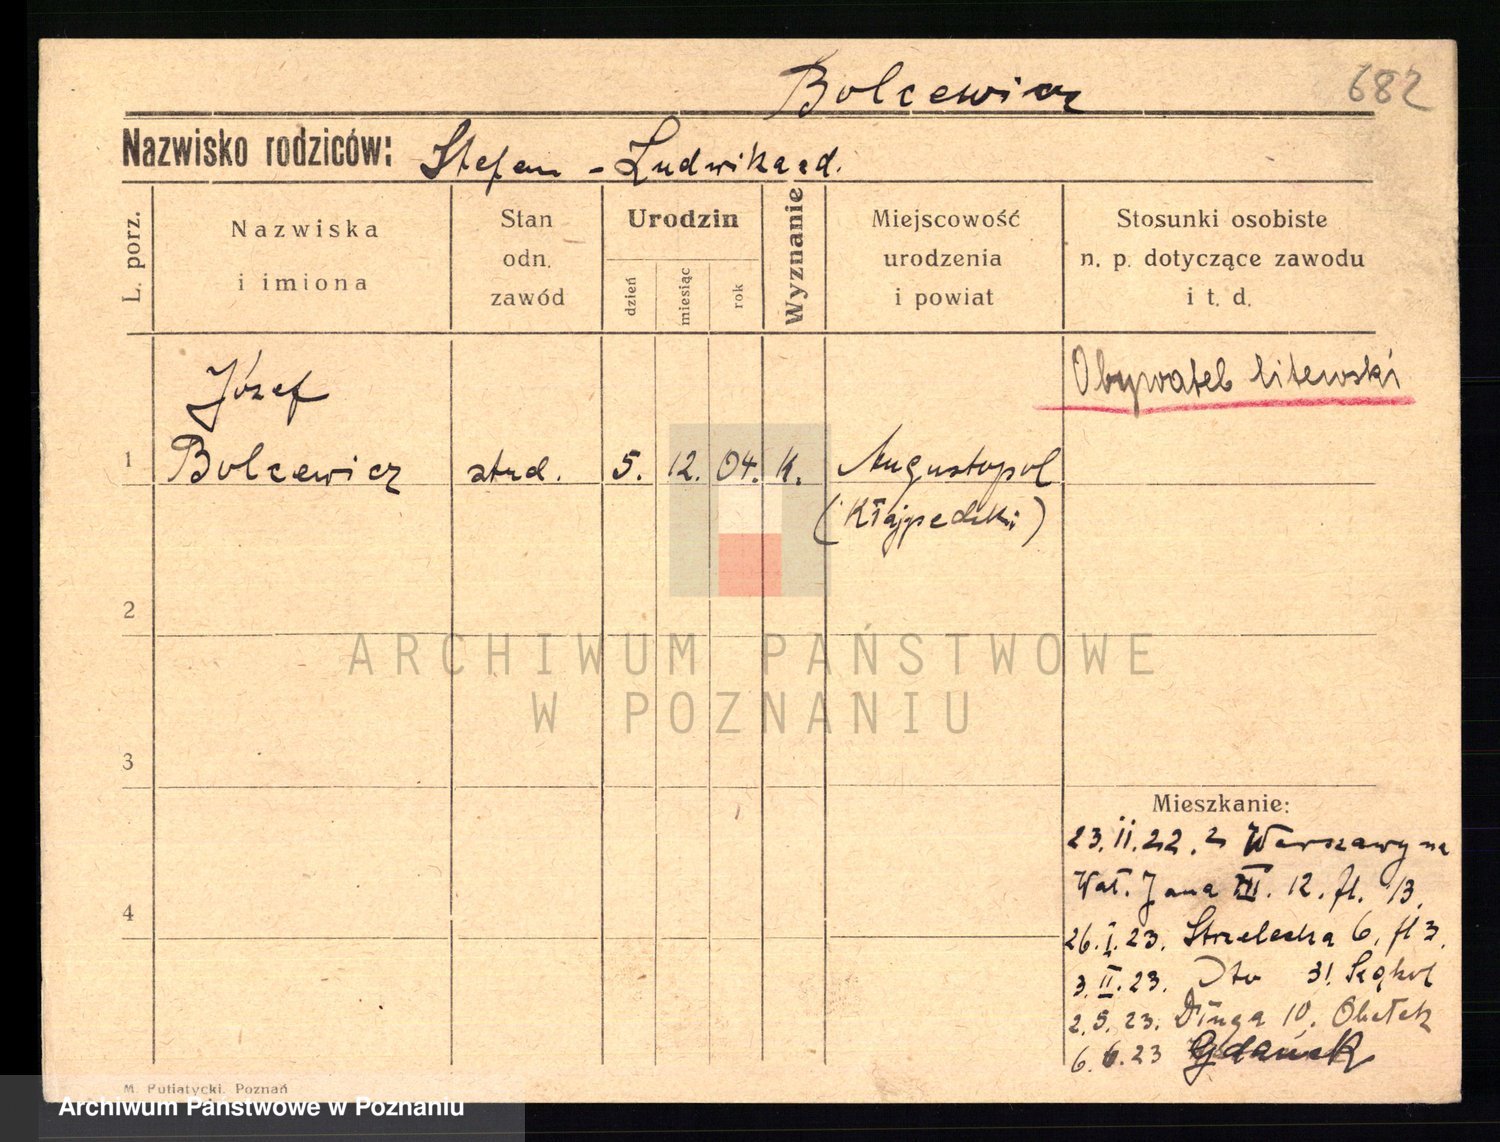 Bolcewicz 682
Nazwisko rodziców: Stefan - Ludwika zd.
L. porz.
Nazwiska
i imiona
Stan
odn.
zawód
Urodzin
dzień
miesiąc
rok
Wyznanie
Miejscowość
urodzenia
i powiat
Stosunki osobiste
n. p. dotyczące zawodu
i t. d.
Obywatel litewski
Józef
1 Bolcewicz stud. 5. 12. 04. k. Augustopol
(Kłajpedzki)
2
ARCHIWUM PAŃSTWOWE
W POZNANIU
3
Mieszkanie:
23.II.22. z Warszawy na
Wał. Jana III. 12. fl. 13.
4
26.I.23. Strzelecka 6. fl 3.
3.II.23. Dto 31
2.5.23. Długa 10.
6.6.23 Gdańsk
M. Putiatycki, Poznań
Archiwum Państwowe w Poznaniu